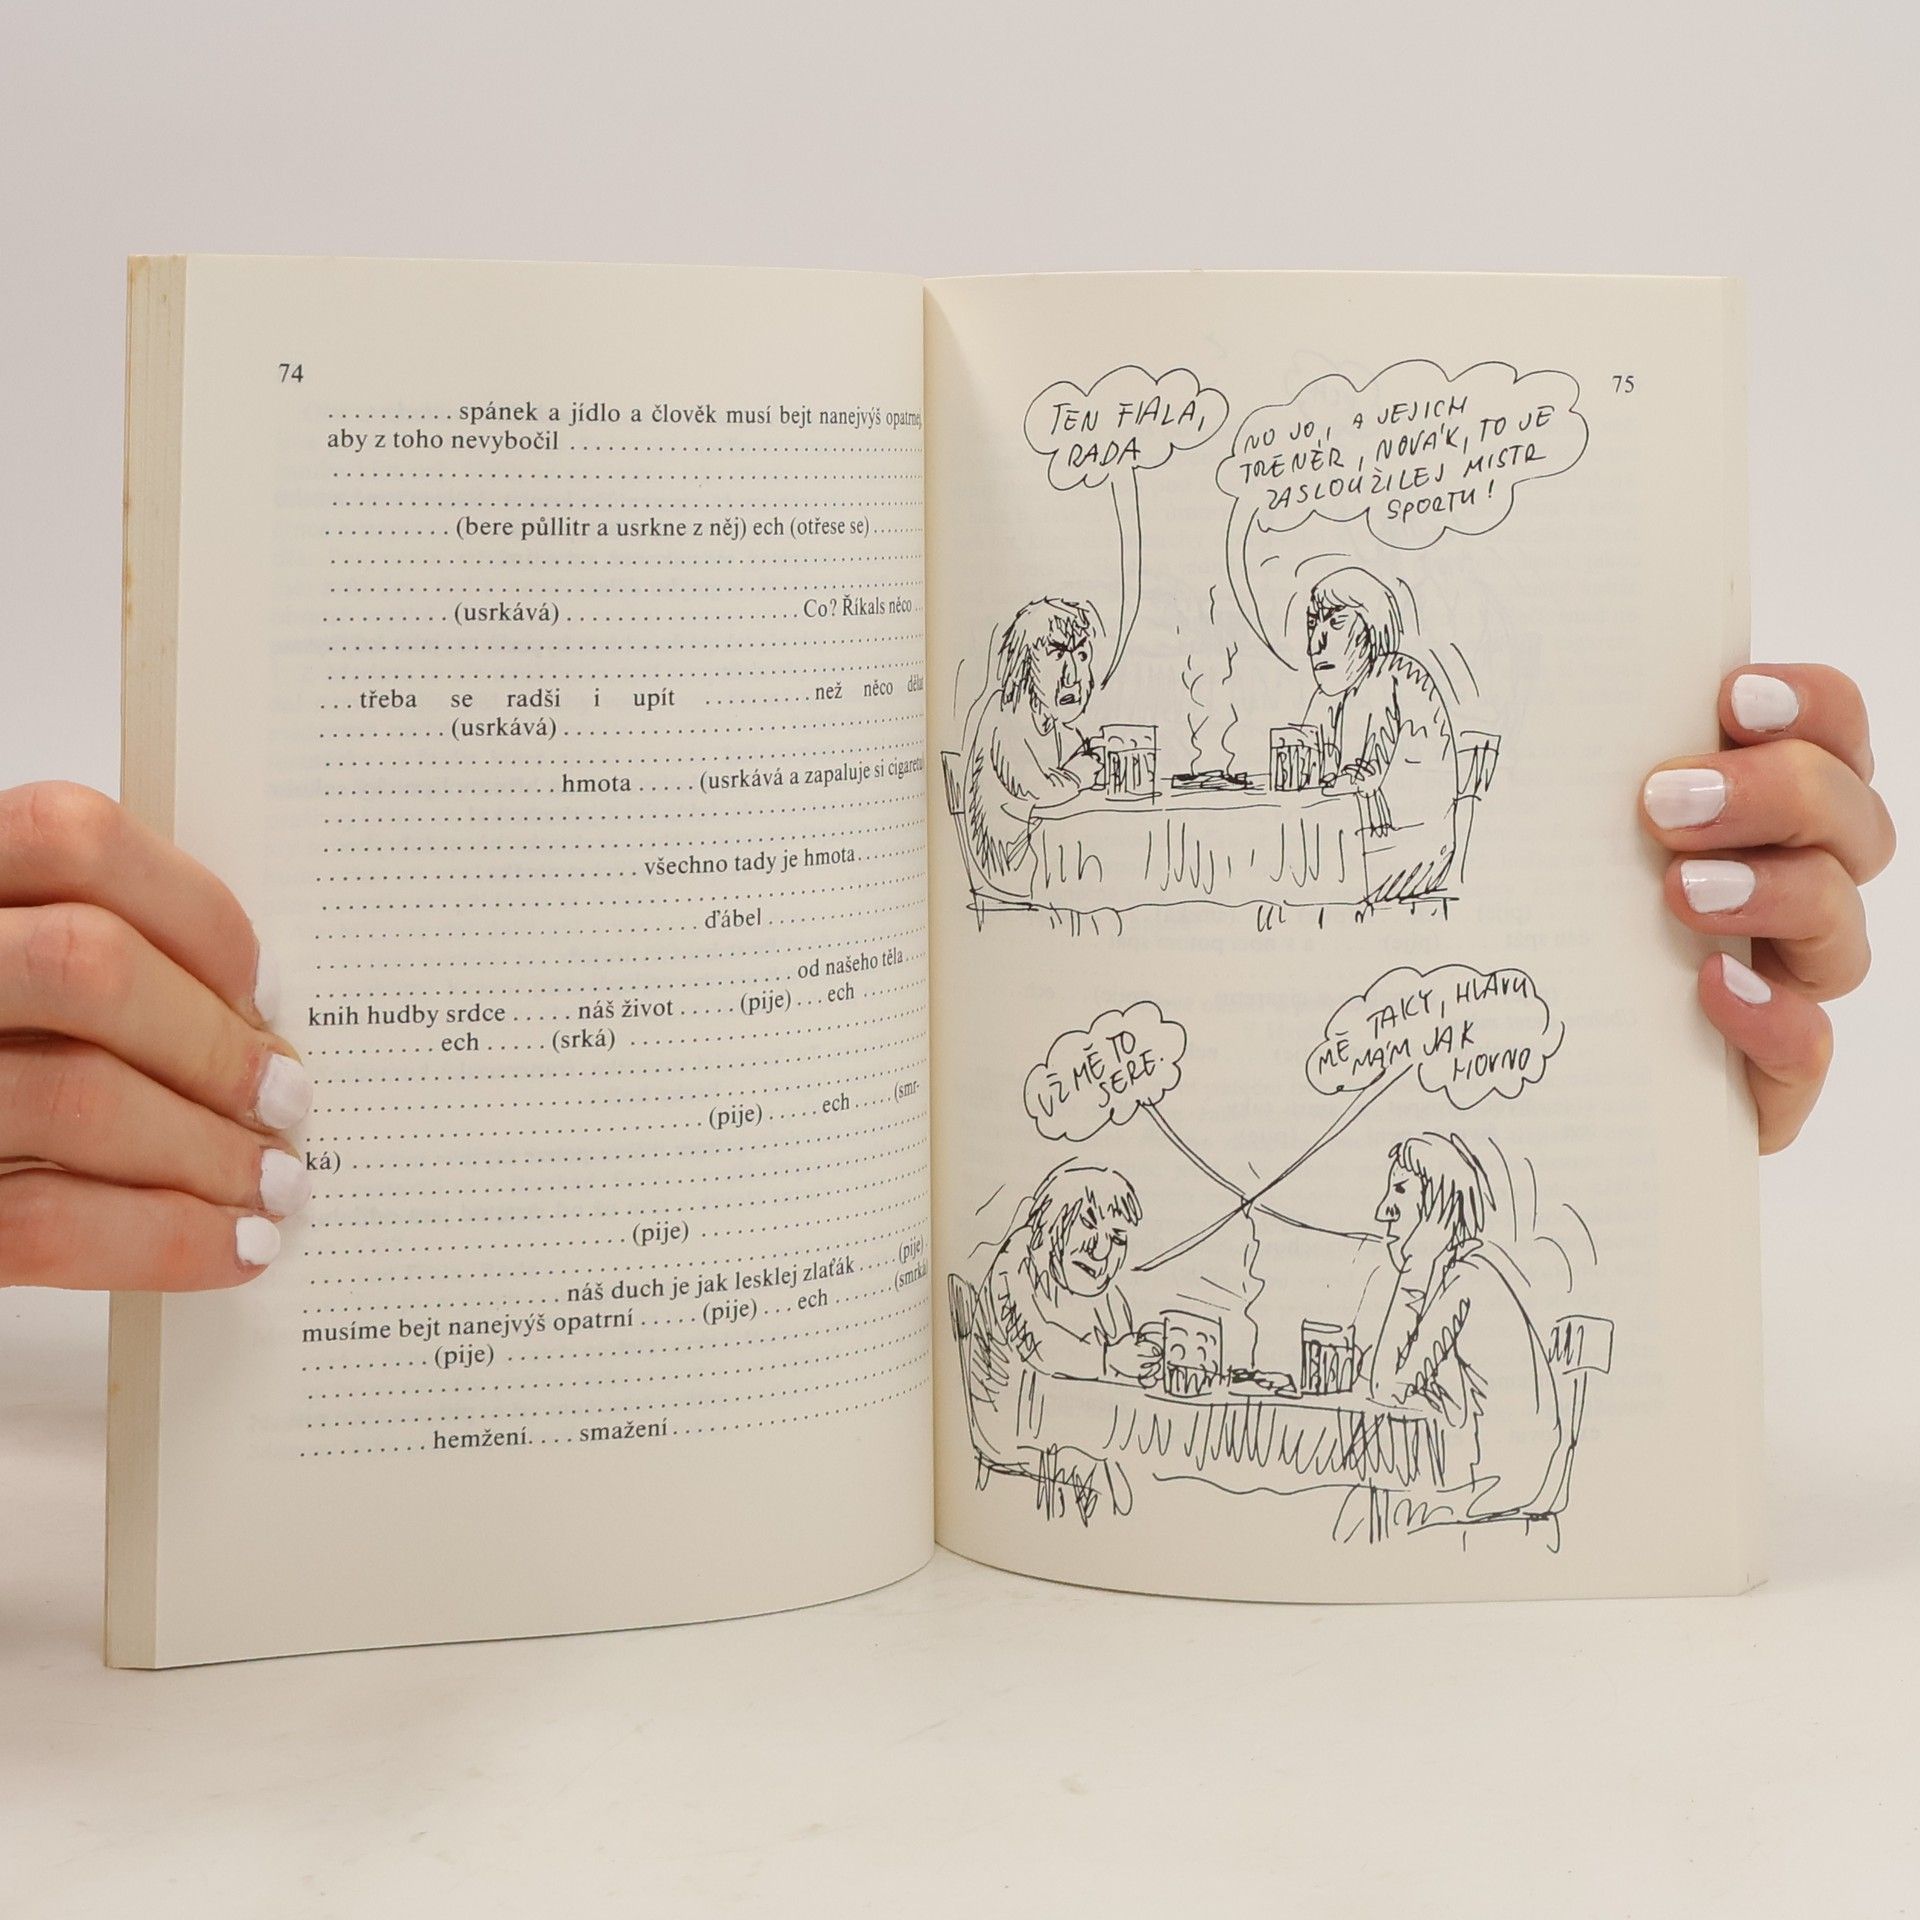 74
.......... spánek a jídlo a člověk musí bejt nanejvýš opatrnej,
aby z toho nevybočil ..............................
..................................................
..................................................
.......... (bere půllitr a usrkne z něj) ech (otřese se) .........
..................................................
..................................................
.......... (usrkává) .................... Co? Říkals něco ...
..................................................
..................................................
... třeba se radši i upít .......... než něco dělat
.......... (usrkává) ..............................
..................................................
.................... hmota ..... (usrkává a zapaluje si cigaretu)
..................................................
..................................................
......................... všechno tady je hmota ..........
..................................................
.............................. ďábel ...............
..................................................
........................................ od našeho těla .....
knih hudby srdce ..... náš život ..... (pije) ... ech ..........
.......... ech ..... (srká) .........................
..................................................
..................................................
.............................. (pije) ..... ech ..... (smr-
ká) ..............................................
..................................................
......................... (pije) ....................
..................................................
.................... náš duch je jak lesklej zlaťák ..... (pije) .
musíme bejt nanejvýš opatrní ..... (pije) ... ech ....... (smrká)
.......... (pije) ..............................
..................................................
..................................................
.......... hemžení.... smažení ....................
75
TEN FIALA,
RADA
NO JO, A JEJICH
TRENÉR, NOVÁK, TO JE
ZASLOUŽILEJ MISTR
SPORTU!
UŽ MĚ TO
SERE.
MĚ TAKY, HLAVU
MÁM JAK
HOVNO